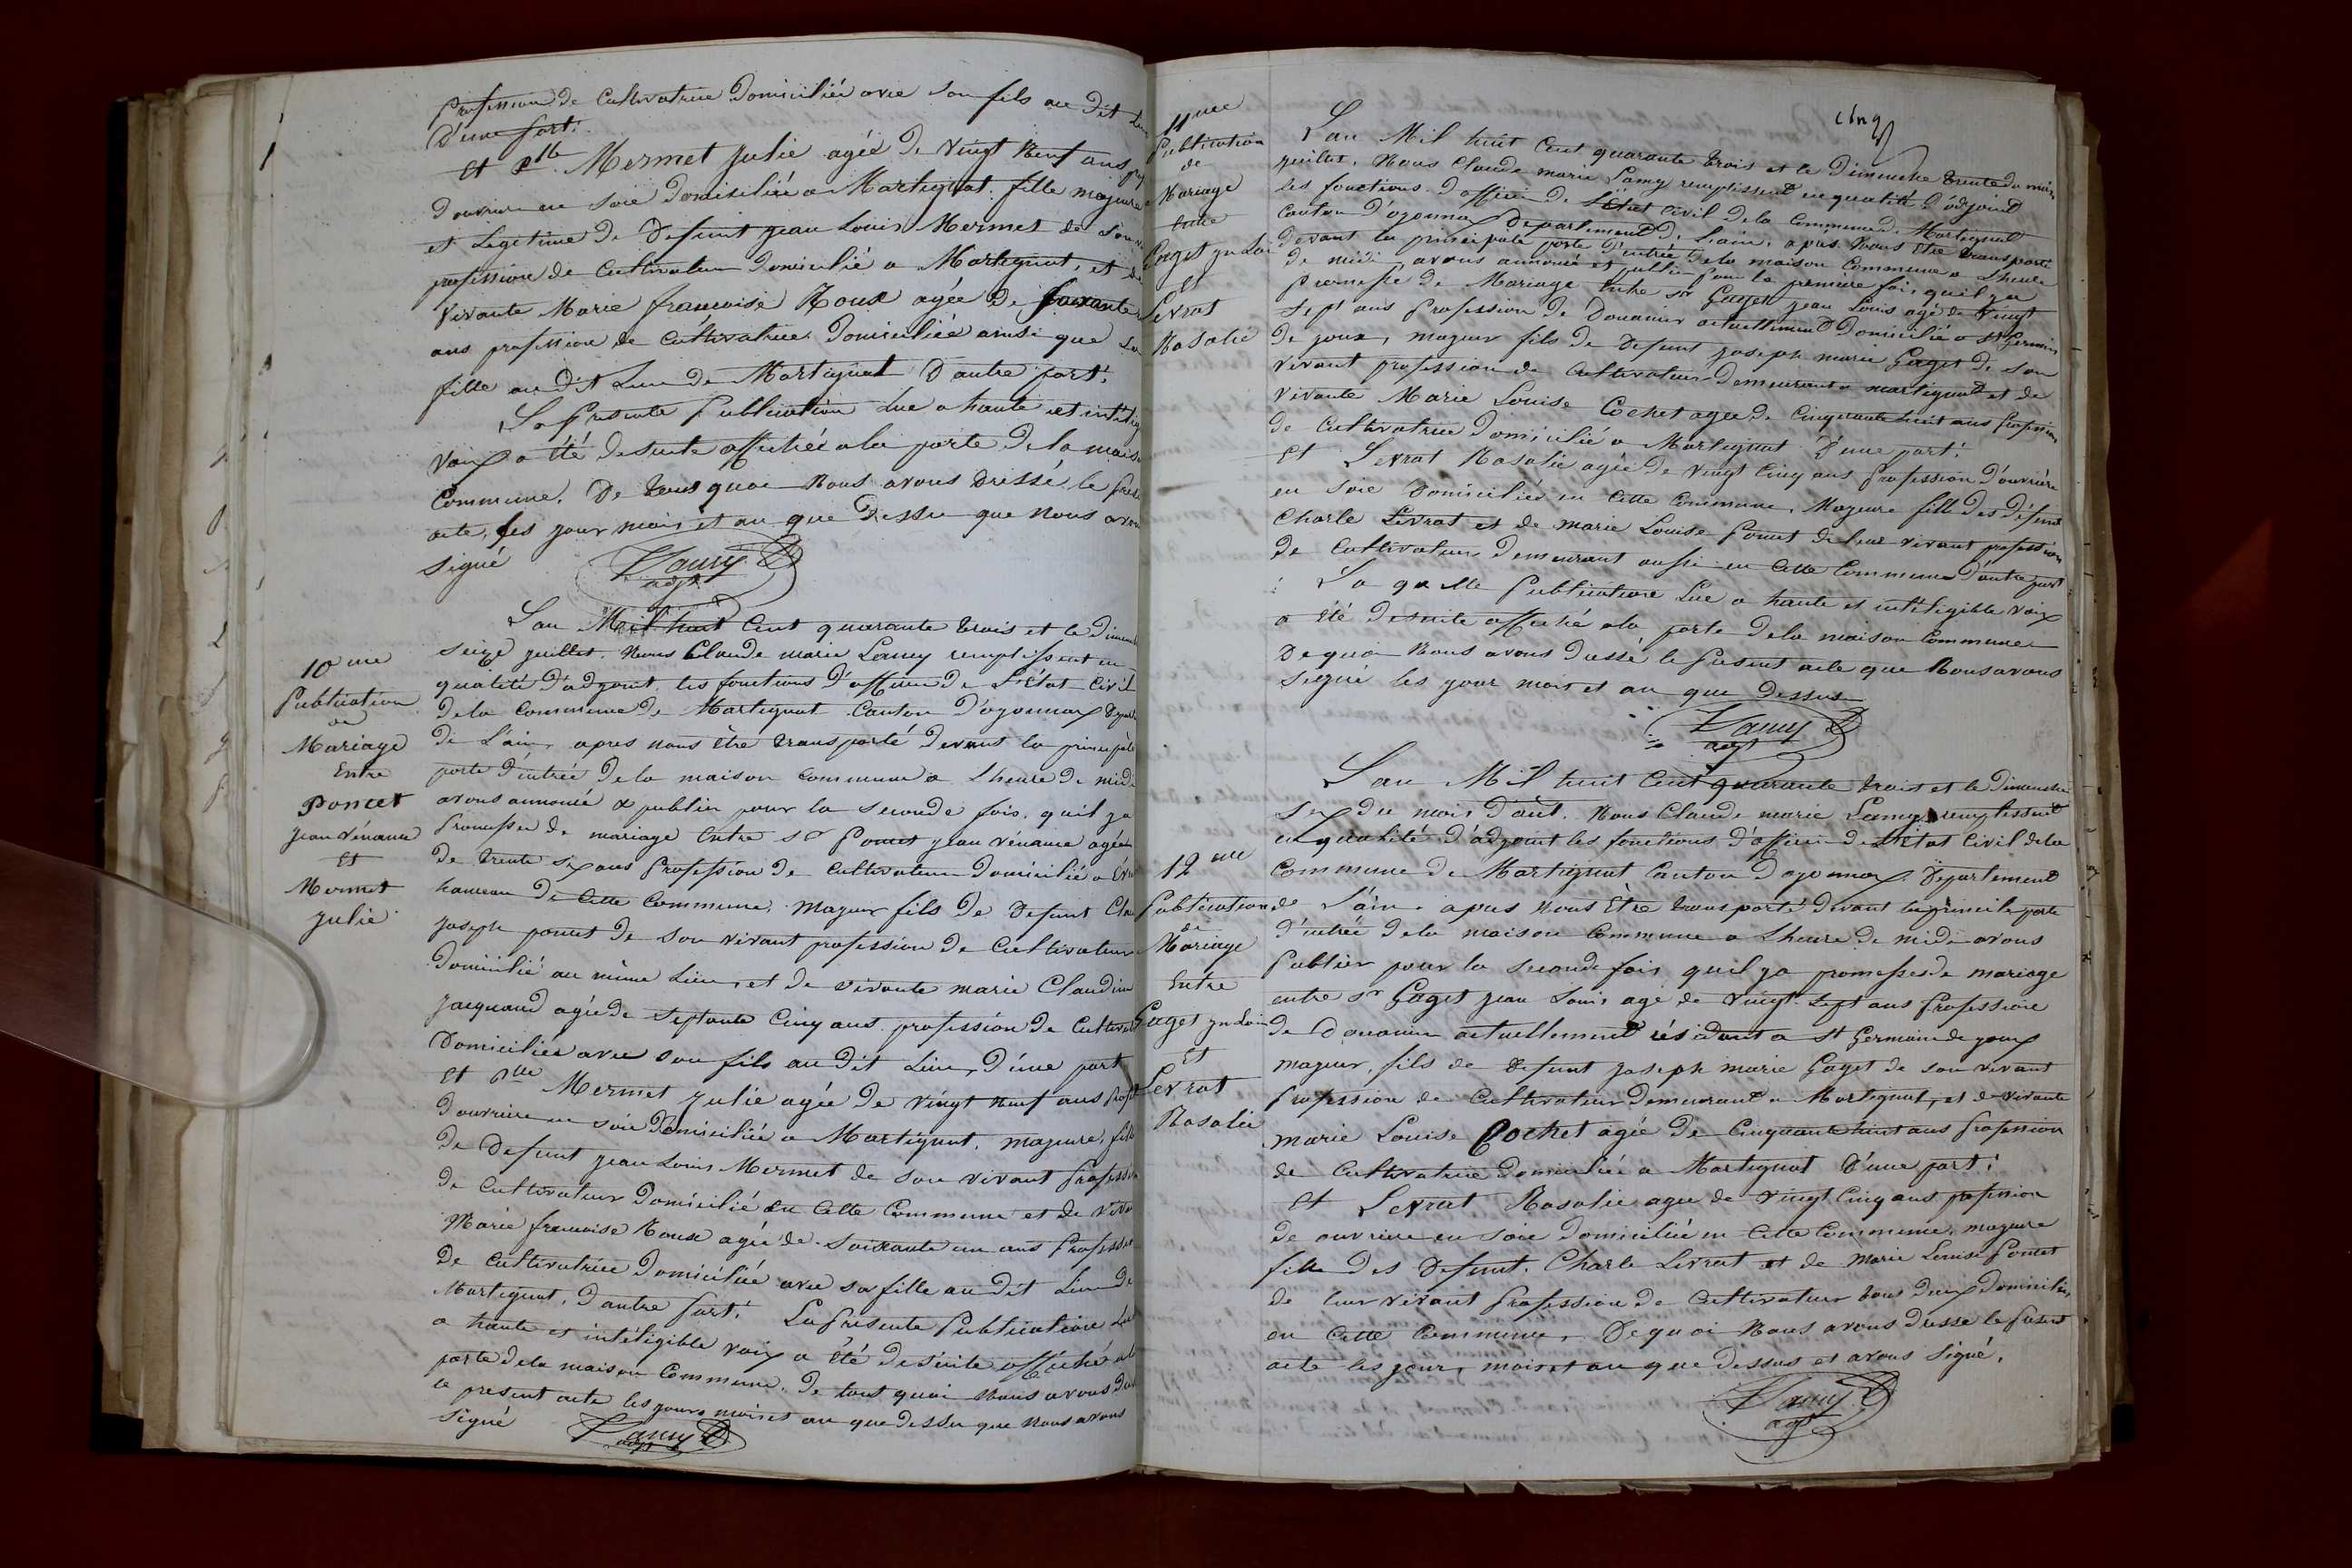 profession de Cultivatrice Domiciliée avec son fils au dit Lieu
D'une part.
Et Dlle Mermet Julie agée de vingt Neuf ans
douvriere en soie Domiciliée a Martignat. fille majeure
et Legitime de Defunt jean Louis Mermet de son
profession de Cultivateur Domicilié a Martignat, et de
vivante Marie francoise Roux agée de soixante
ans profession de Cultivatrice Domiciliée ainsi que sa
fille au dit Lieu de Martignat D'autre part.
La presente publication Lue a haute et intelig
voix a été desuite affichée ala porte Dela mais
Commune. De tous quoi Nous avons Dressé le pres
acte, les jour mois et an que Dessu que Nous avon
Signé
Lamy
adjt
10me
Publication
de
Mariage
Entre
Poncet
Jean Vénance
Et
Mermet
julie
L'an Mil huit Cent quarante trois et le Diman
seize juillet. Nous Claude marie Lamy remplissent en
qualité d'adjoint les fonctions d'officier De L'état Civil
Dela Commune De Martignat Canton D'oyonnax Depart
De L'ain, apres nous être transporté devant la principale
porte d'entrée Dela maison Commune a Lheure de midi
avons annoncé & publier pour la seconde fois, quil ya
promesse de mariage Entre sr Poncet jean Vénance agée
De trente six ans profession de Cultivateur Domicilié a
hameau de Cette Commune. Majeur fils De Defunt Clau
joseph poncet de son vivant profession de Cultivateur
Domicilié au même Lieu, et de vivante marie Claudine
jacquand agée de septante Cinq ans profession de Cultivat
Domiciliée avec son fils au dit Lieu, D'une part
Et Dlle Mermet julie agée De vingt Neuf ans profe
Douvriere en soie Domiciliée a Martignat, majeure, fille
De Defunt jean Louis Mermet de son vivant professio
De Cultivateur Domicilié en Cette Commune et de viva
Marie francoise Roux agée de soixante un ans profession
De Cultivatrice Domiciliée avec sa fille au dit Lieu de
Martignat, D'autre part. La presente Publication Lue
a haute et inteligible voix a été desuite affiché ala
porte dela maison Commune. De tout quoi Nous avons
le present acte les jours mois et an que dessu que Nous avons
Signé
Lamy
adjt
cinq
11me
Publication
de
Mariage
Entre
Gaget jn Loui
Et
Levrat
Rosalie
L'an Mil huit Cent quarante trois et le Dimanche trente du mois
juillet. Nous Claude marie Lamy remplissent en qualité d'adjoint
les fonctions d'officier de L'état Civil dela Commune de Martignat
Canton d'oyonnax Departement de L'ain. apres Nous être transporté
devant la principale porte d'entrée Dela maison Commune a Lheure
de midi, avons annoncé et publier pour la premiere fois, quil ya
promesse de Mariage Entre sr Gaget jean Louis agé de vingt
sept ans profession de Douanier actuellement Domicilié a St Germain
de joux, majeur fils de Defunt joseph marie Gaget de son
vivant profession de Cultivateur demeurant a martignat et de
vivante Marie Louise Cochet agée de Cinquante huit ans profession
de Cultivatrice Domicilié a Martignat D'une part.
Et Levrat Rosalie agée de vingt Cinq ans profession d'ouvrière
en soie Domiciliée en Cette Commune, Majeure fille Des défunt
Charle Levrat et de marie Louise Poncet de leur vivant profession
de Cultivateur Demeurant aussi en Cette Commune D'autre part
La quelle publication Lue a haute et inteligible voix
a été desuite affiché ala porte Dela maison Commune
De quoi Nous avons dressé le present acte que Nous avons
signé les jour mois et an que Dessus
Lamy
adjt
12me
Publication
de
Mariage
Entre
Gaget jn Loui
Et
Levrat
Rosalie
L'an Mil huit Cent quarante trois et le Dimanche
six du mois d'aout. Nous Claude marie Lamy remplissent
en qualité d'adjoint les fonctions d'officier de L'état Civil dela
Commune de Martignat Canton d'oyonnax. Département
de L'ain. apres Nous être transporté devant la princile porte
d'entrée dela maison Commune a Lheure de midi avons
publier pour la seconde fois quil ya promesse de mariage
entre sr Gaget jean Louis agé de vingt sept ans profession
de Douanier actuellement résidant a St Germain de joux
majeur, fils de defunt joseph marie Gaget de son vivant
profession de Cultivateur Demeurant a Martignat, et de vivante
marie Louise Cochet agée de Cinquante huit ans profession
de Cultivatrice domiciliée a Martignat D'une part.
Et Levrat Rosalie agée de vingt Cinq ans profession
de ouvriere en soie Domiciliée en Cette Commune, majeure
fille Des Defunt. Charle Levrat et de Marie Louise Poncet
de leur vivant profession de Cultivateur tous Deux Domiciliés
en Cette Commune. De quoi Nous avons dressé le present
acte les jour, mois et an que dessus et avons signé.
Lamy
adjt